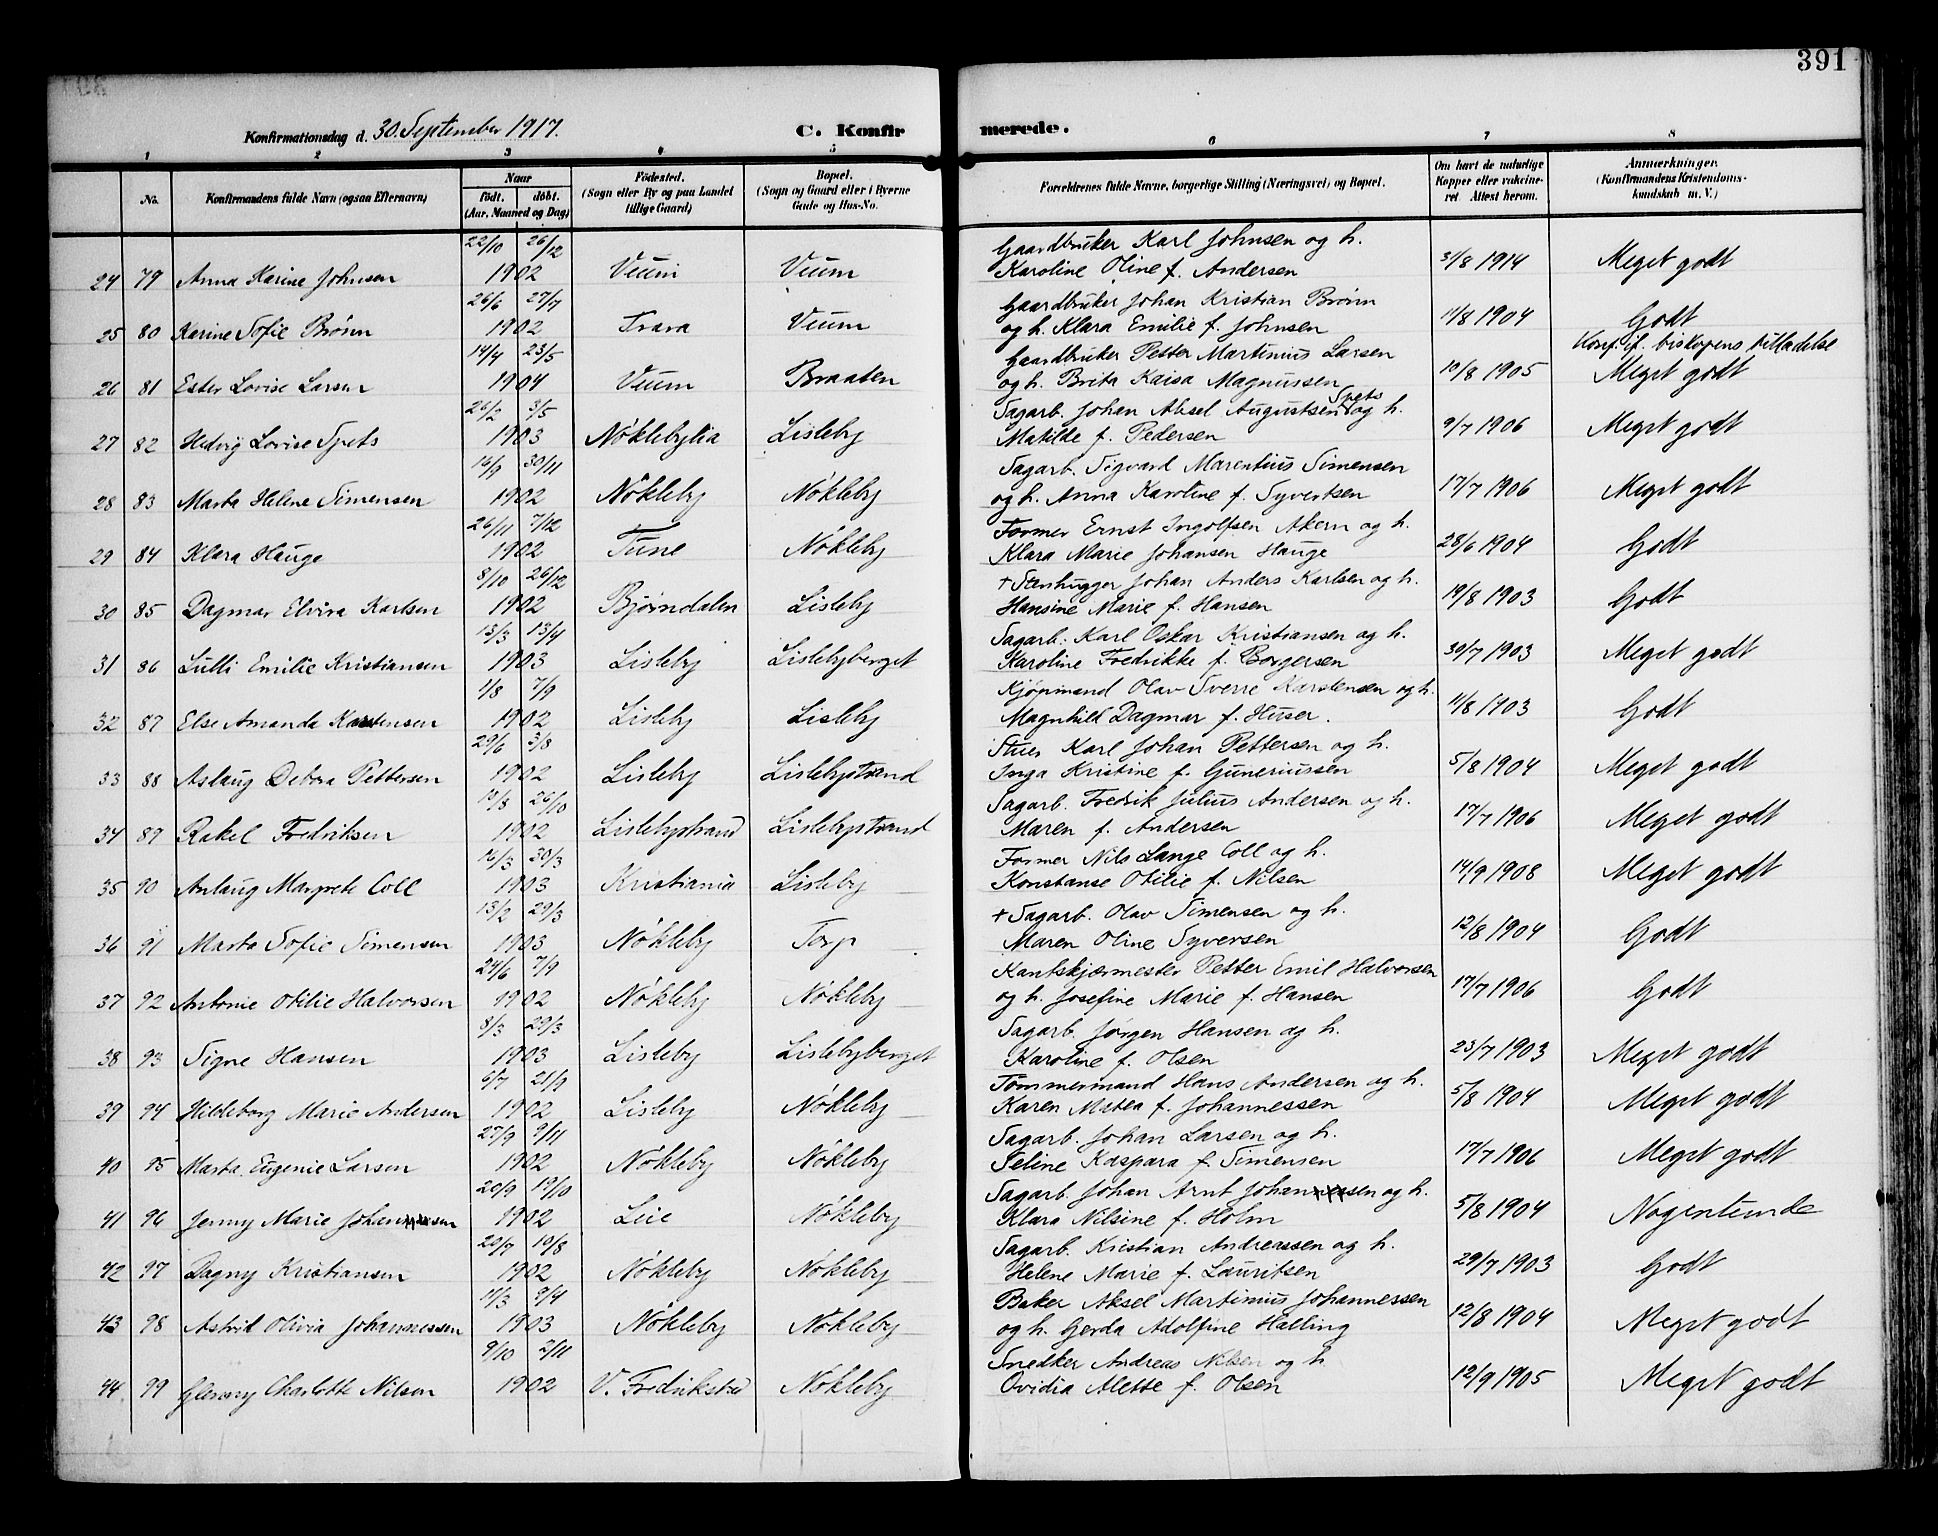 391
Konfirmationsdag d. 30. September 1917. C. Konfirmerede.
1 2 3 4 5 6 7 8
No. Konfirmandens fulde Navn (ogsaa Efternavn) Naar födt. döbt. (Aar, Maaned og Dag) Födested. (Sogn eller By og paa Landet tillige Gaard) Bopæl. (Sogn og Gaard eller i Byerne Gade og Hus-No. Forældrenes fulde Navne, borgerlige Stilling (Næringsvei) og Bopæl. Om havt de naturlige Kopper eller vakcineret Attest herom. Anmærkninger. (Konfirmandens Kristendomskundskab m. V.)
22/10 26/12 Gaardbruker Karl Johnsen og h.
24 79 Anna Karine Johnsen 1902 Veum Veum Karoline Oline f. Andersen 31/8 1914 Meget godt
26/6 27/7 Gaardbruker Johan Kristian Brönn
25 80 Karine Sofie Brönn 1902 Trara Veum og h. Klara Emilie f. Johnsen 11/8 1904 Godt
14/4 23/5 Gaardbruker Petter Martinius Larsen Konf. if. biskopens tilladelse
26 81 Ester Lovise Larsen 1904 Veum Braaten og h. Brita Kaisa Magnussen 10/8 1905 Meget godt
26/2 3/5 Sagarb. Johan Aksel Augustsen Spets og h.
27 82 Hedvig Lovise Spets 1903 Nöklebylia Lisleby Matilde f. Pedersen 9/7 1906 Meget godt
16/9 30/11 Sagarb. Sigvard Marentius Simensen
28 83 Marta Helene Simensen 1902 Nökleby Nökleby og h. Anna Karoline f. Syvertsen 17/7 1906 Meget godt
26/11 7/12 Former Ernst Ingolfsen Akern og h.
29 84 Klara Hauge 1902 Tune Nökleby Klara Marie Johansen Hauge 28/6 1904 Godt
8/10 26/12 + Stenhugger Johan Anders Karlsen og h.
30 85 Dagmar Elvira Karlsen 1902 Bjørndalen Lisleby Hansine Marie f. Hansen 19/8 1903 Godt
13/3 13/4 Sagarb. Karl Oskar Kristiansen og h.
31 86 Lulli Emilie Kristiansen 1903 Lisleby Lislebyberget Karoline Fredrikke f. Borgersen 30/7 1903 Meget godt
1/8 7/9 Kjöpmand Olav Sverre Karstensen og h.
32 87 Else Amanda Karstensen 1902 Lisleby Lisleby Magnhild Dagmar f. Huser. 11/8 1903 Godt
29/6 3/8 Stuer Karl Johan Pettersen og h.
33 88 Aslaug Debora Pettersen 1902 Lisleby Lislebystrand Inga Kristine f. Guneriussen 5/8 1904 Meget godt
13/8 26/10 Sagarb. Fredrik Julius Andersen og h.
34 89 Rakel Fredriksen 1902 Lislebystrand Lislebystrand Maren f. Andersen 17/7 1906 Meget godt
16/3 30/3 Former Nils Lange Coll og h.
35 90 Anlaug Margrete Coll 1903 Kristiania Lisleby Konstanse Otilie f. Nilsen 14/9 1908 Meget godt
13/2 29/3 + Sagarb. Olav Simensen og h.
36 91 Marta Sofie Simensen 1903 Nökleby Torp Maren Oline Syversen 12/8 1904 Godt
24/6 7/9 Kantskjærmester Petter Emil Halvorsen
37 92 Antonie Otilie Halvorsen 1902 Nökleby Nökleby og h. Josefine Marie f. Hansen 17/7 1906 Godt
8/3 29/3 Sagarb. Jørgen Hansen og h.
38 93 Signe Hansen 1903 Lisleby Lislebyberget Karoline f. Olsen 23/7 1903 Meget godt
6/7 21/9 Tömmermand Hans Andersen og h.
39 94 Hildeborg Marie Andersen 1902 Lisleby Nökleby Karen Matea f. Johannessen 5/8 1904 Meget godt
27/9 9/11 Sagarb. Johan Larsen og h.
40 95 Marta Eugenie Larsen 1902 Nökleby Nökleby Seline Kaspara f. Simensen 17/7 1906 Meget godt
20/9 19/10 Sagarb. Johan Arnt Johansen og h.
41 96 Jenny Marie Johansen 1902 Leie Nökleby Klara Nilsine f. Holm 5/8 1904 Nogenlunde
20/7 10/8 Sagarb. Kristian Andreassen og h.
42 97 Dagny Kristiansen 1902 Nökleby Nökleby Helene Marie f. Lauritsen 29/7 1903 Godt
11/3 9/4 Baker Aksel Martinius Johannessen
43 98 Astrid Olivia Johannessen 1903 Nökleby Nökleby og h. Gerda Adolfine Halling 12/8 1904 Meget godt
9/10 2/11 Snedker Andreas Nilsen og h.
44 99 Charlotte Nilsen 1902 V. Fredrikstad Nökleby Ovidia Alette f. Olsen 12/9 1905 Meget godt